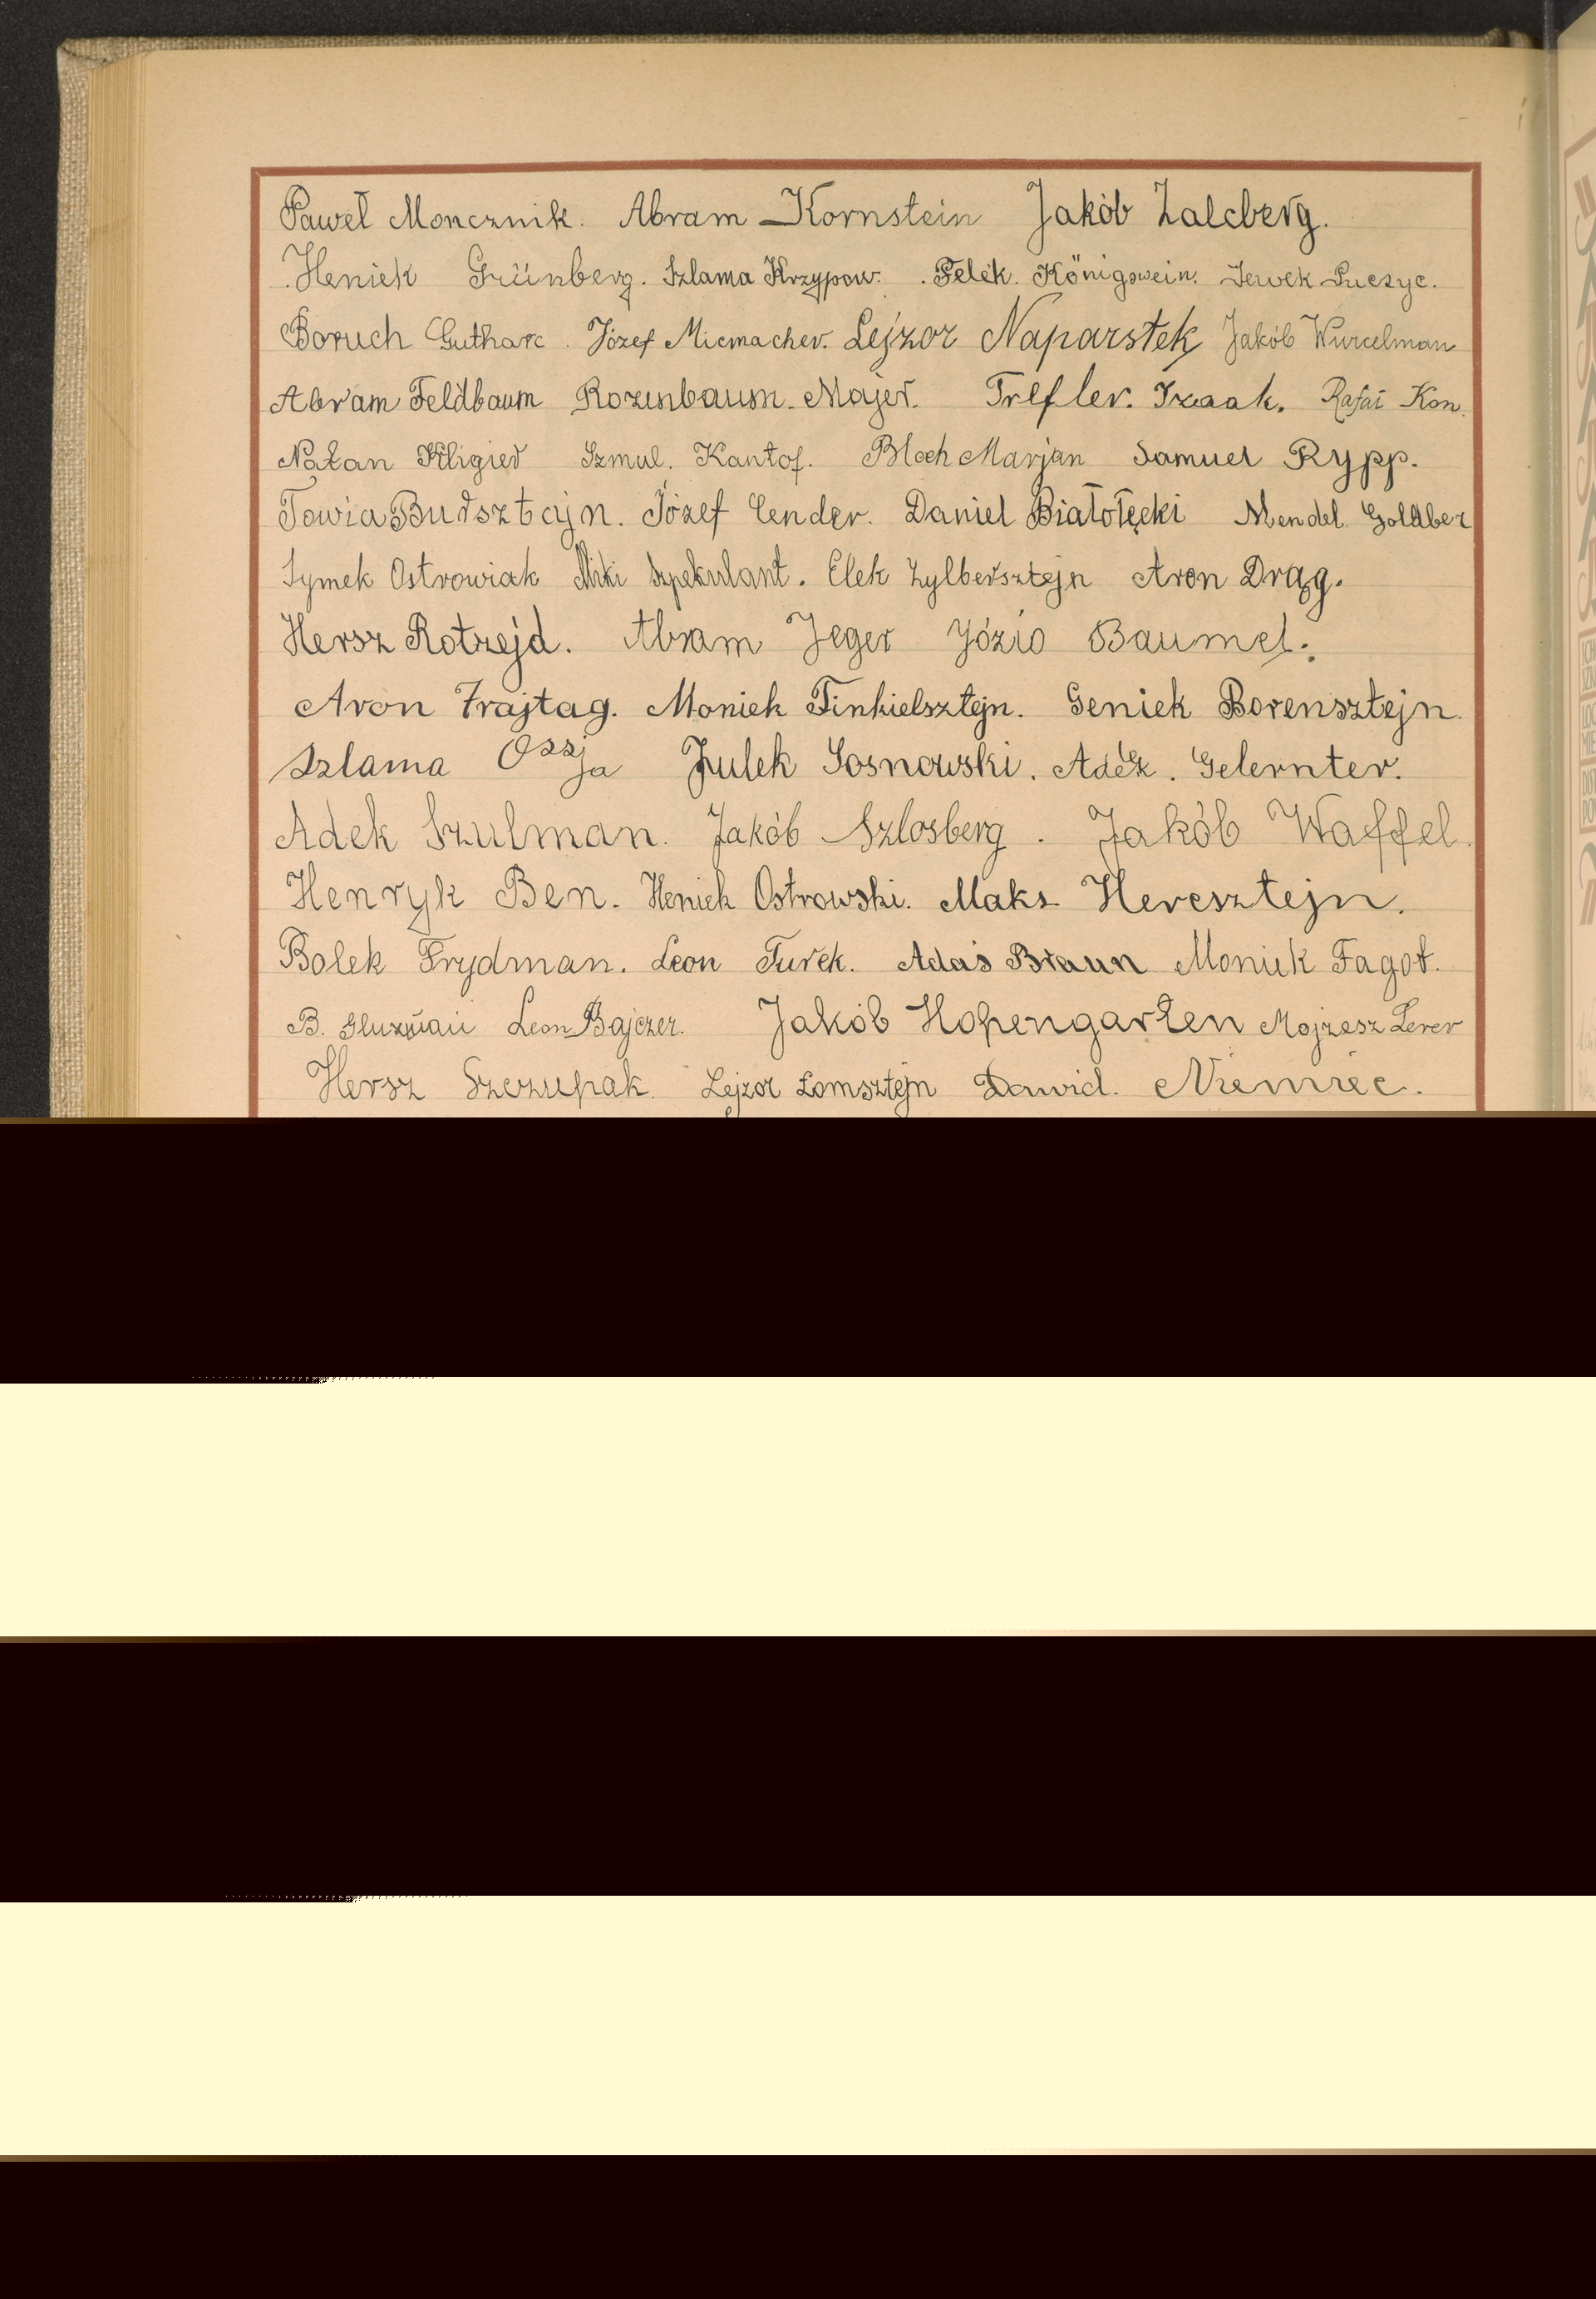 Paweł Moncznik. Abram Kornstein Jakób Zalcberg.
Heniek Grünberg. Szlama Krzypow. Felek. Königswein. Jewek
Boruch Gutharc. Józef Micmacher. Lejzor Naparstek Jakób Wurcelman
Abram Feldbaum Rozenbaum. Majer. Trefler. Izaak. Rafał Kon.
Natan Fligier Szmul. Kantof. Bloch Marjan Samuel Rypp.
Towia Budsztajn. Józef Cender. Daniel Białołęcki Mendel. Goldber
Symek Ostrowiak Miki Szpekulant. Elek Zylbersztejn Aron Drąg.
Hersz Rotzejd. Abram Jeger Józio Baumel.
Aron Frajtag. Moniek Finkielsztejn. Geniek Borensztejn.
Szlama Ossja Julek Sosnowski. Gelernter.
Adek Szulman. Jakób Szlosberg. Jakób Waffel.
Henryk Ben. Heniek Ostrowski. Maks Heresztejn.
Bolek Frydman. Leon Turek. Adaś Braun Moniek Fagot.
B. Gluzman Leon Bajczer. Jakób Hopengarten Mojzesz Lerer
Hersz Szczupak. Lejzor Łomsztejn Dawid. Niemiec.